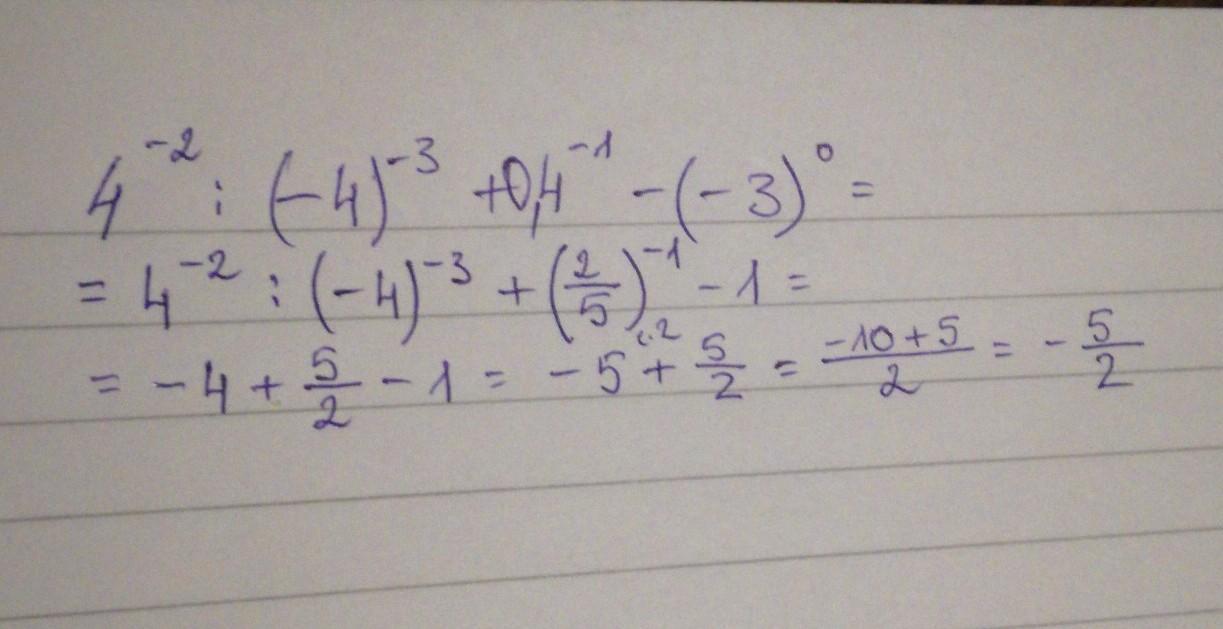 4⁻² : (-4)⁻³ + 0,4⁻¹ - (-3)⁰ =
= 4⁻² : (-4)⁻³ + (2/5)⁻¹ - 1 =
= -4 + 5/2 - 1 = -5 + 5/2 = (-10+5)/2 = -5/2